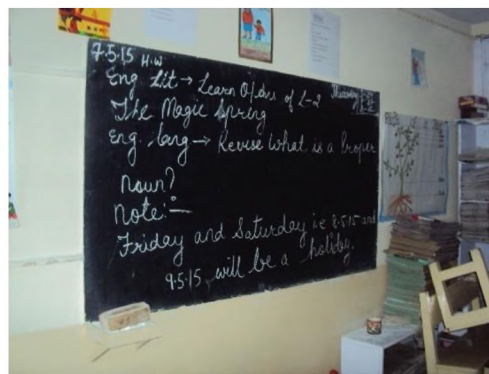 7.5.15 H.W.
Eng Lit → Learn Q/Ans of L-2
The Magic Spring
Eng. Lang → Revise What is a Proper
noun?
Note:—
Friday and Saturday i.e 8.5.15 and
9.5.15 will be a holiday.